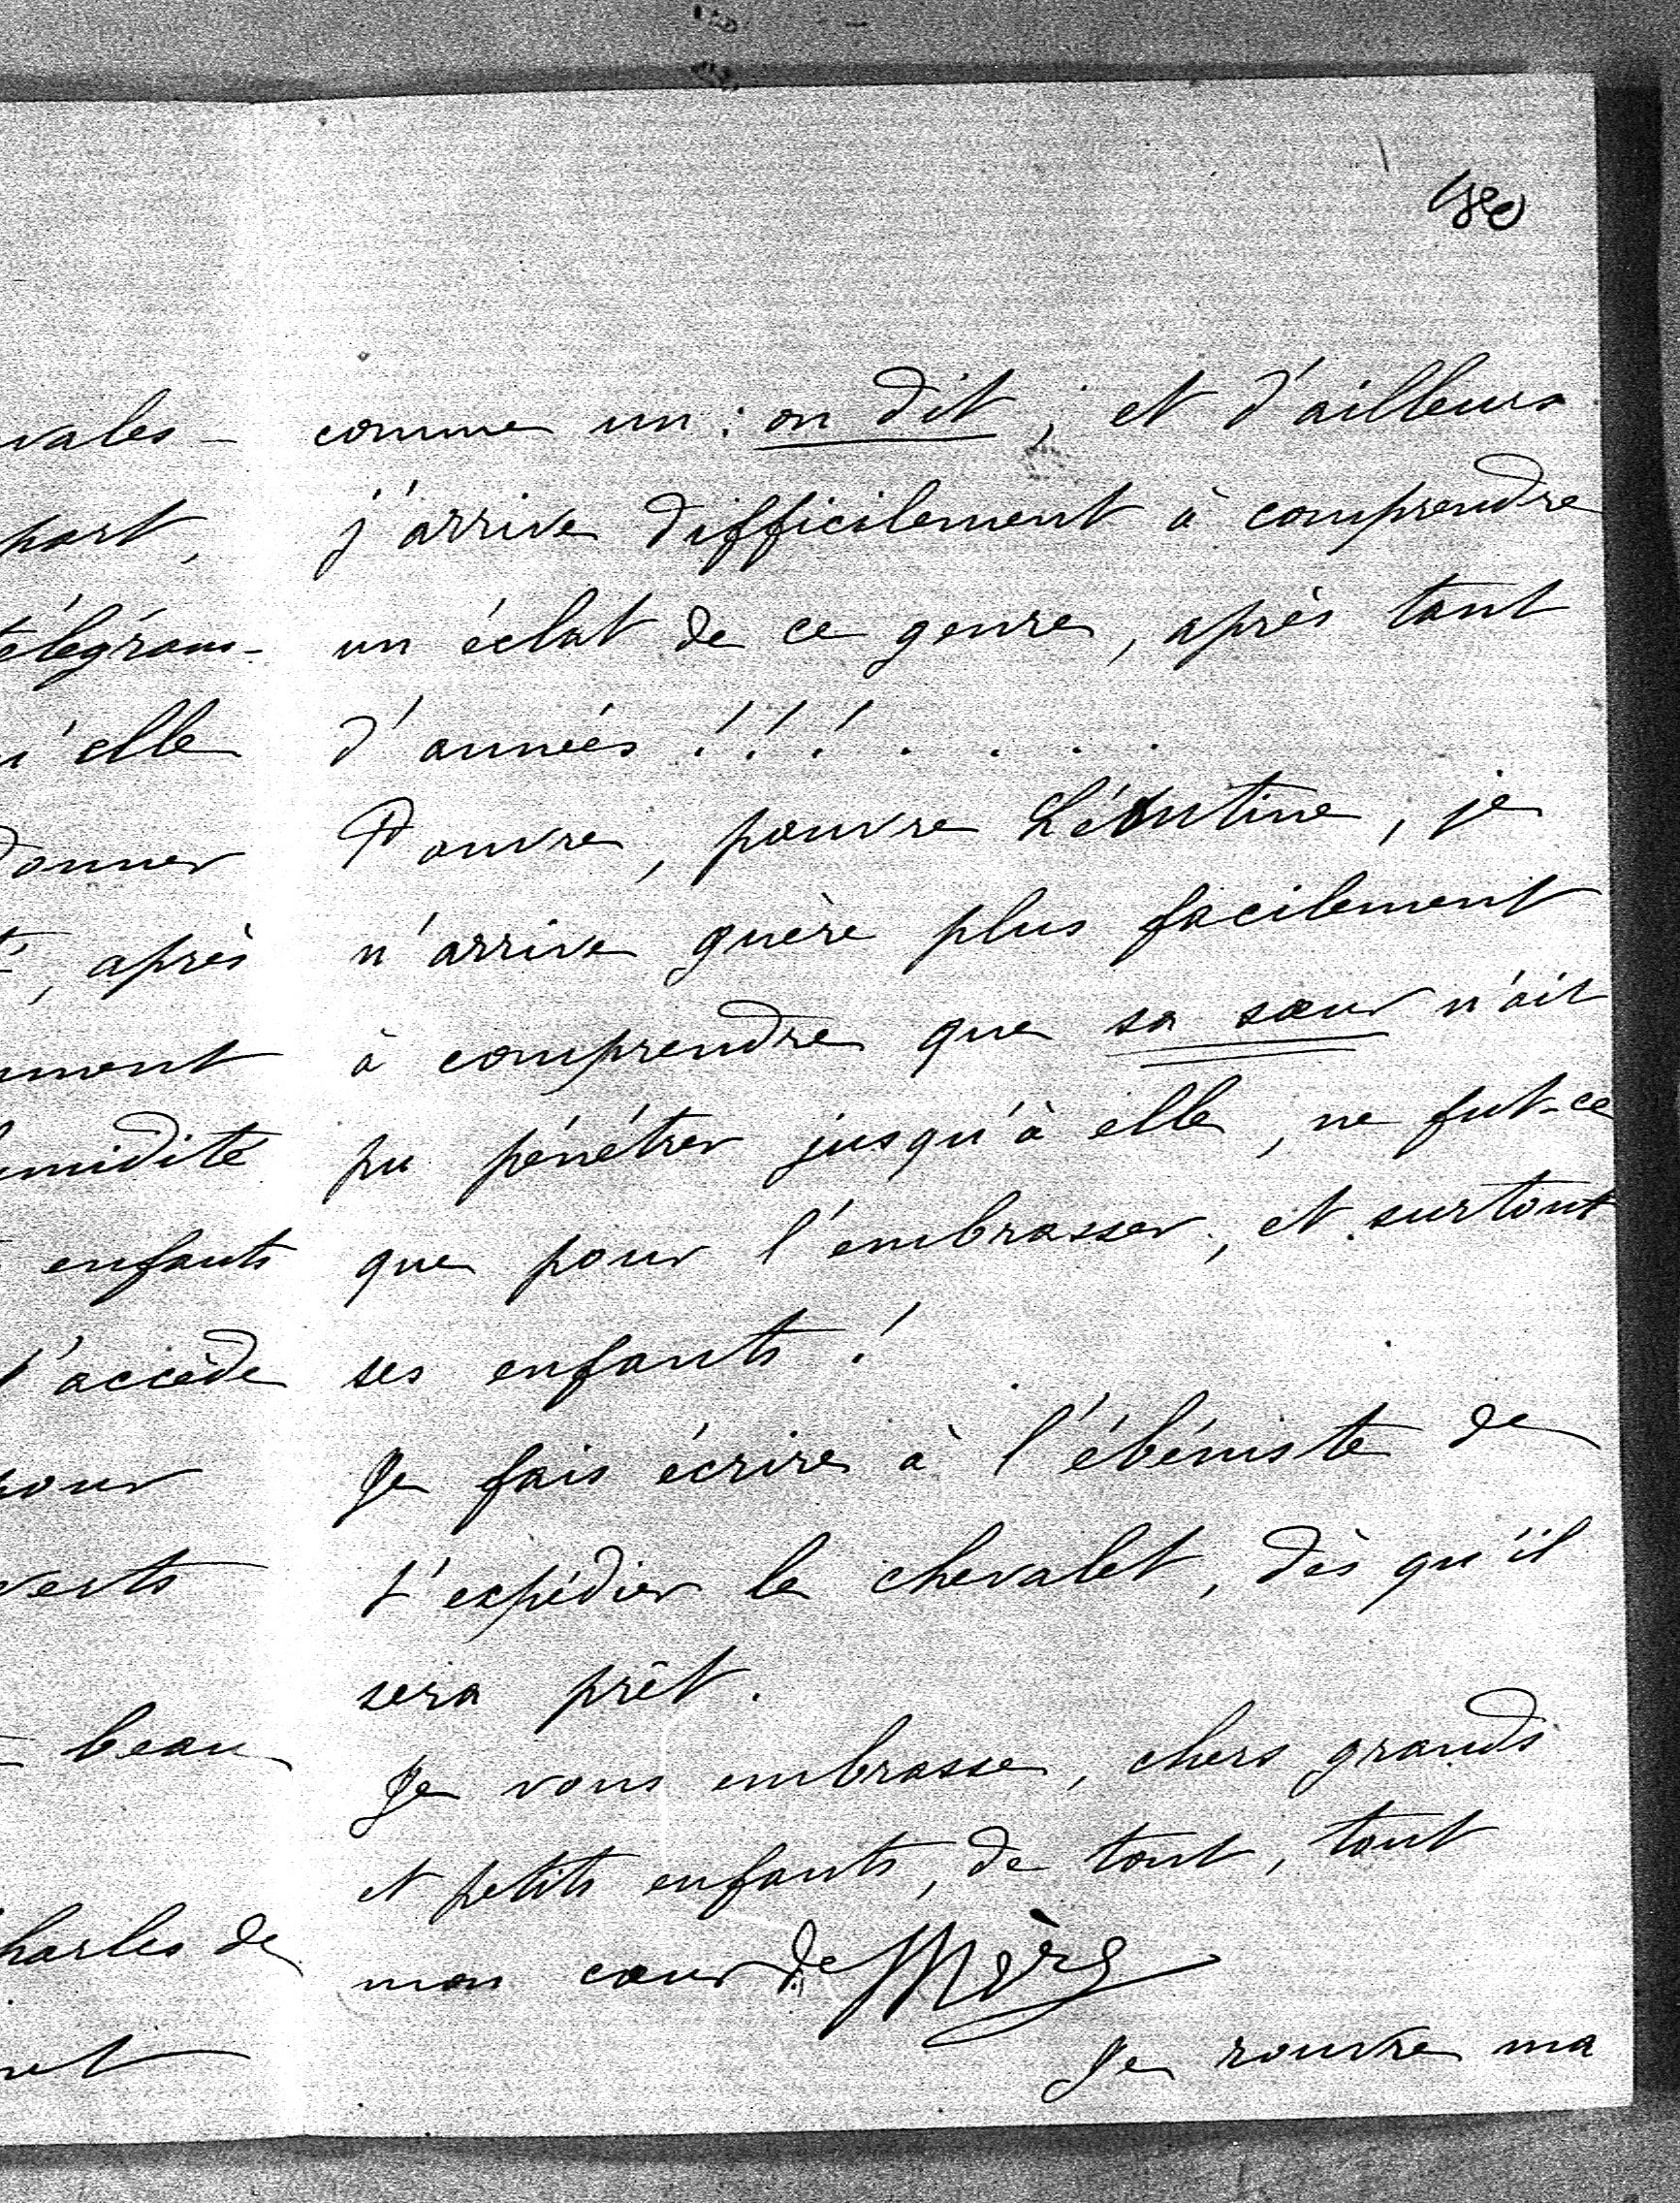 180
vales-
part,
télégram-
u'elle
donner
, après
ment
midité
enfants
l'accède
pour
verts
beau
harles de
et
comme un : on dit ; et d'ailleurs
j'arrive difficilement à comprendre
un éclat de ce genre, après tant
d'années !!! . . . .
Pauvre, pauvre Léontine, je
n'arrive guère plus facilement
à comprendre que sa sœur n'ait
pu pénétrer jusqu'à elle, ne fut-ce
que pour l'embrasser, et surtout
ses enfants !
Je fais écrire à l'ébéniste de
t'expédier le chevalet, dès qu'il
sera prêt.
Je vous embrasse, chers grands
et petits enfants, de tout, tout
mon cœur de Mère
Je rouvre ma